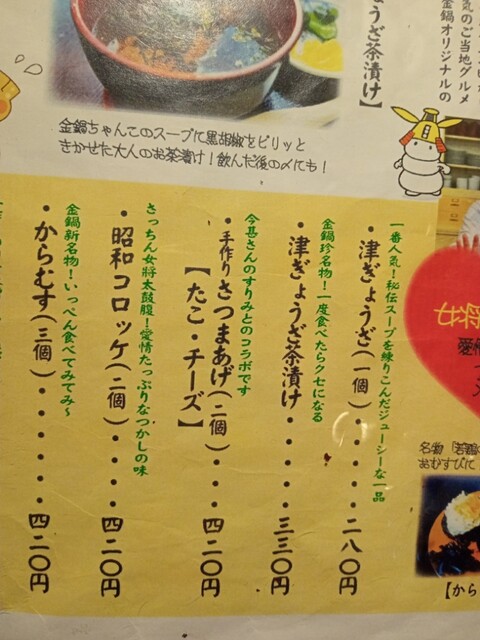 気のご当地グルメ
金鍋オリジナルの
ょうざ茶漬け】
金鍋ちゃんこのスープに黒胡椒をピリッと
きかせた大人のお茶漬け！飲んだ後の〆にも！
一番人気！秘伝スープを練りこんだジューシーな一品
・津ぎょうざ（一個）・・・・二八〇円
金鍋珍名物！一度食べたらクセになる
・津ぎょうざ茶漬け・・・・・三三〇円
今甚さんのすりみとのコラボです
・手作りさつまあげ（二個）・・・四二〇円
【たこ・チーズ】
さっちん女将太鼓腹！愛情たっぷりなつかしの味
・昭和コロッケ（二個）・・・・四二〇円
金鍋新名物！いっぺん食べてみてみ～
・からむす（三個）・・・・・四二〇円
おむすびに
【から